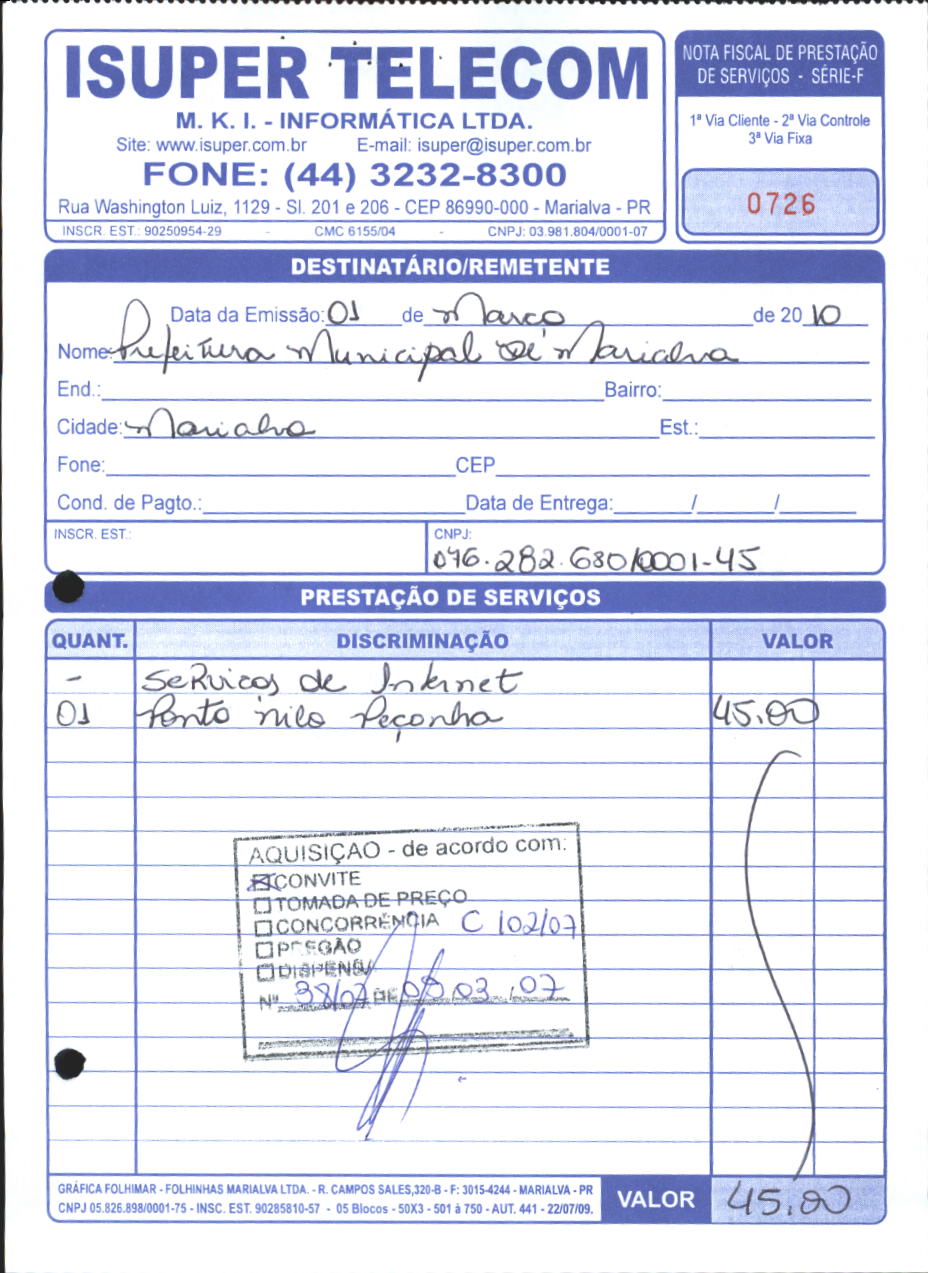 ISUPER TELECOM
M. K. I. - INFORMÁTICA LTDA.
Site: www.isuper.com.br E-mail: isuper@isuper.com.br
FONE: (44) 3232-8300
Rua Washington Luiz, 1129 - Sl. 201 e 206 - CEP 86990-000 - Marialva - PR
INSCR. EST.: 90250954-29 - CMC 6155/04 - CNPJ: 03.981.804/0001-07
NOTA FISCAL DE PRESTAÇÃO
DE SERVIÇOS - SÉRIE-F
1ª Via Cliente - 2ª Via Controle
3ª Via Fixa
0726
DESTINATÁRIO/REMETENTE
Data da Emissão: 01 de Março de 2010
Nome: Prefeitura Municipal de Marialva
End.: Bairro:
Cidade: Marialva Est.:
Fone: CEP
Cond. de Pagto.: Data de Entrega: / /
INSCR. EST.: CNPJ:
076.282.680/0001-45
PRESTAÇÃO DE SERVIÇOS
QUANT. DISCRIMINAÇÃO VALOR
- Servicos de Internet
01 Ponto nilo Peçanha 45.00
AQUISIÇÃO - de acordo com:
CONVITE
TOMADA DE PREÇO
CONCORRÊNCIA C 102/07
PREGÃO
DISPENSA
Nº 38/07 DE 09 03 , 07
GRÁFICA FOLHIMAR - FOLHINHAS MARIALVA LTDA. - R. CAMPOS SALES,320-B - F: 3015-4244 - MARIALVA - PR
CNPJ 05.826.898/0001-75 - INSC. EST. 90285810-57 - 05 Blocos - 50X3 - 501 à 750 - AUT. 441 - 22/07/09.
VALOR 45.00